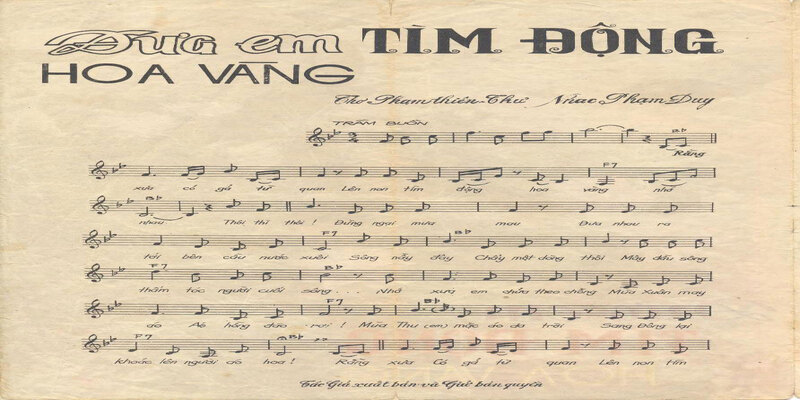 Đưa em TÌM ĐỘNG
HOA VÀNG
Thơ Phạm Thiên-Thư Nhạc Phạm Duy
TRẦM BUỒN
Bb
Rằng
F7
xưa có gã từ quan Lên non tìm động hoa vàng nhớ
Bb
nhau Thôi thì thôi! Đừng ngại mưa mau Đưa nhau ra
F7
tới bên cầu nước xuôi Sông này đây Chảy một dòng thôi Mây đầu sông
Bb
thẫm tóc người cuối sông... Nhớ xưa em chửa theo chồng Mùa Xuân may
F7 Bb
áo Áo hồng đào rơi! Mùa Thu (em) mặc áo da trời Sang Đông lại
F7 Bb F7
khoác lên người áo hoa! Rằng xưa Có gã từ quan Lên non tìm
Tác Giả xuất bản và Giữ bản quyền